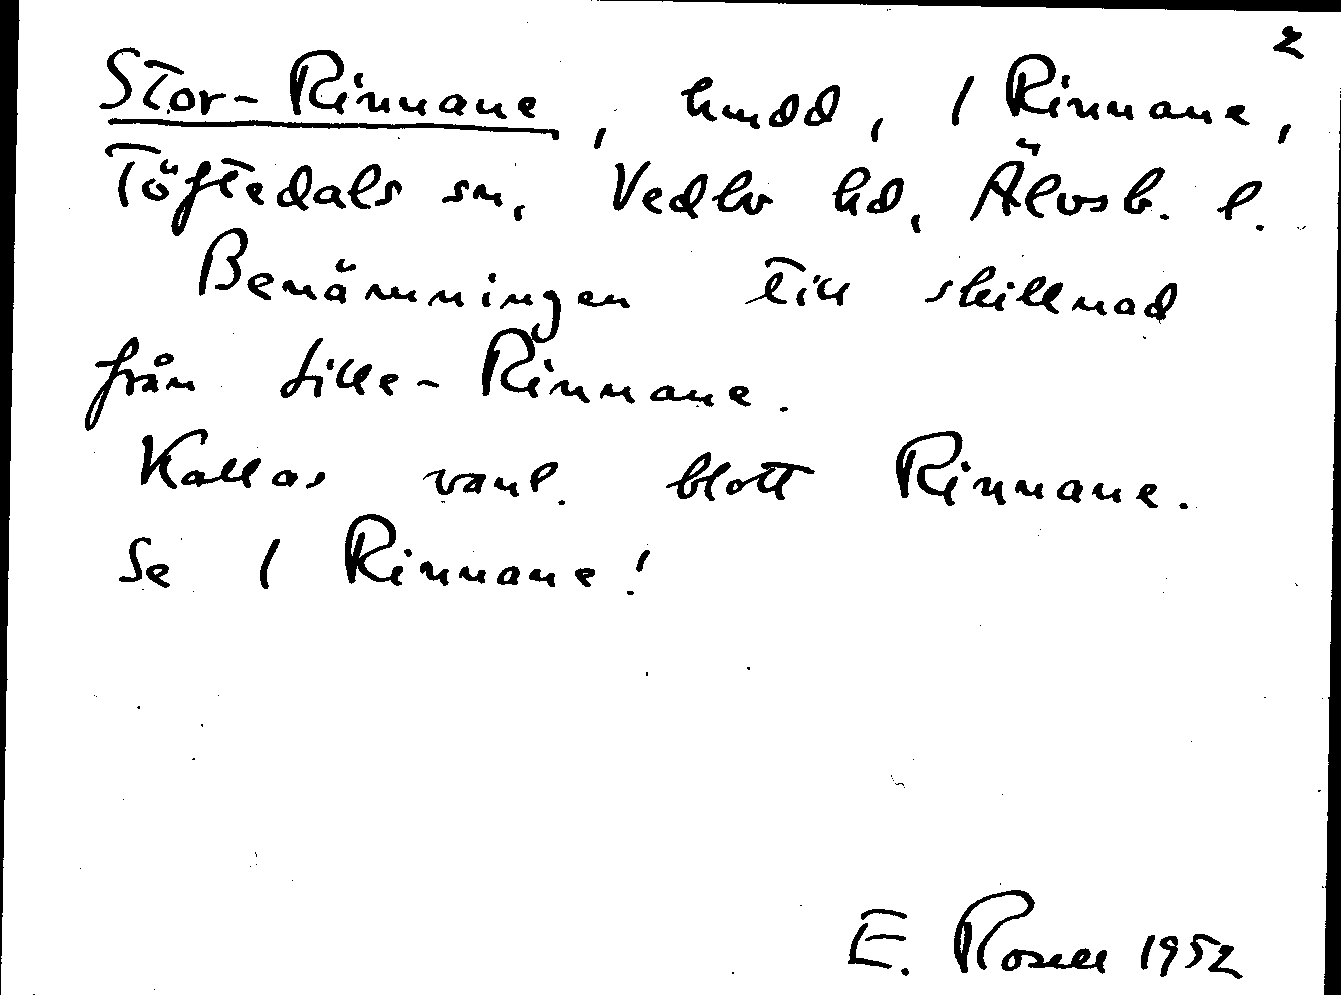 2
Stor-Rinnane, hmdd, 1 Rinnane,
Töftedals sn, Vedbo hd, Älvsb. l.
Benämningen till skillnad
från Lille-Rinnane.
Kallas vanl. blott Rinnane.
Se 1 Rinnane!
E. Rosell 1952